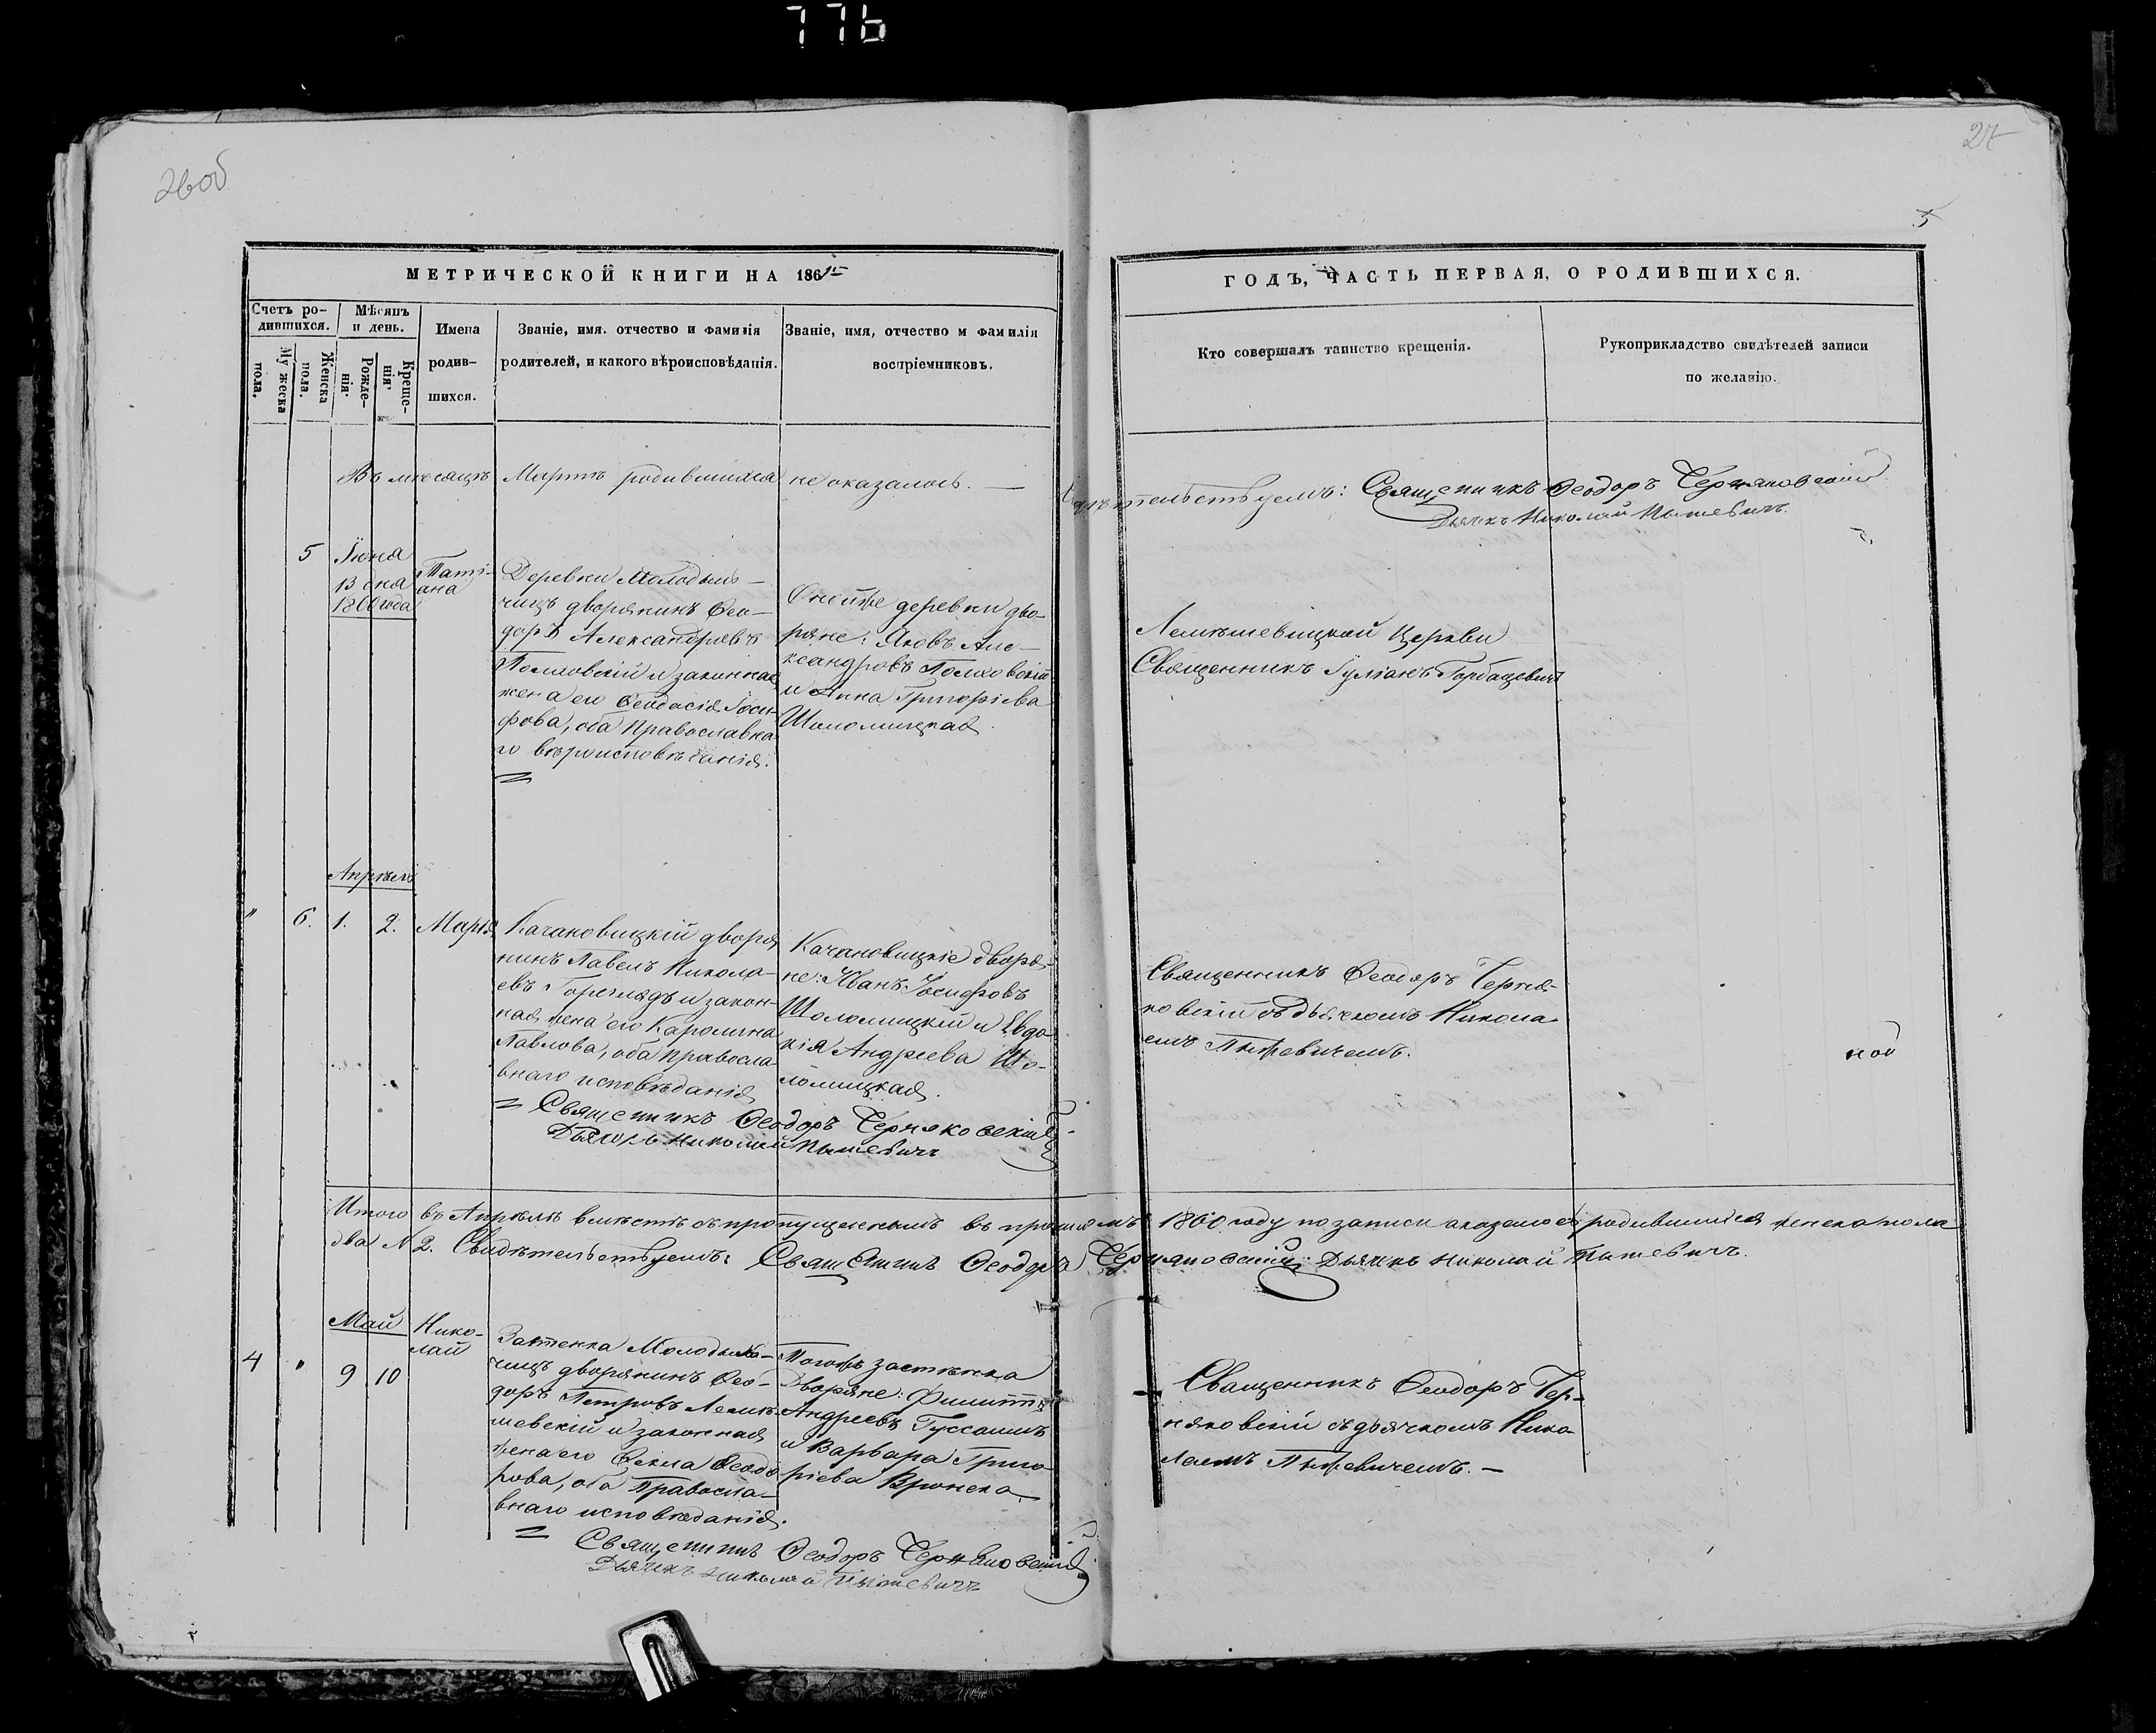 776
26об
27
5
МЕТРИЧЕСКОЙ КНИГИ НА 1861
Счетъ ро-
дившихся.
Мѣсяцъ
и день.
Мужеска
пола.
Женска
пола.
Рожде-
нія.
Креще-
нія.
Имена
родив-
шихся.
Званіе, имя. отчество и фамилія
родителей, и какого вѣроисповѣданія.
Званіе, имя, отчество и фамилія
воспріемниковъ.
ГОДЪ, ЧАСТЬ ПЕРВАЯ, О РОДИВШИХСЯ.
Кто совершалъ таинство крещенія.
Рукоприкладство свидѣтелей записи
по желанію.
Въ месяцѣ Мартѣ родившихся не оказалось. —
Священникъ Ѳеодоръ Черняковскій
Дьячкъ Николай
5
Іюня
13 дня
1860 года
Таті-
ана
Деревни Молодель-
чицъ дворянинъ Ѳео-
доръ Александровъ
Полховскій и законная
жена его Ѳеодосія Іоси-
фова, оба Православна-
го вѣроисповѣданія.
Оной же деревни дво-
ряне: Яковъ Але-
ксандровъ Полховскій
и Анна Григоріева
Шоломицкая.
Лемешевицкой Церкви
Священникъ Іуліанъ Горбацевичъ
Апрѣль
" 6. 1. 2. Марія
Качановицкій дворя
нинъ Павелъ Никола-
евъ Гореглядъ и закон-
ная жена его Каролина
Павлова, оба Правосла-
внаго исповѣданія
Качановицкіе дворя-
не: Иванъ Іосифовъ
Шоломицкій и Евдо-
кія Андреева Шо-
ломицкая.
Священникъ Ѳеодоръ Черня-
ковскій съ дьячкомъ Никола-
емъ
ной
Священникъ Ѳеодоръ Черняковскій
Дьячкъ Николай
Итого въ Апрѣлѣ вместѣ съ пропущеннымъ въ прошломъ 1860 году по записи оказалось родившихся женска пола
два № 2. Свидѣтельствуемъ: Священникъ Ѳеодоръ Черняковскій: Дьячкъ Николай
Май
4 " 9 10
Нико-
лай
Застенка Молодель-
чицъ дворянинъ Ѳео-
доръ Петровъ Лемѣ-
шевскій и законная
жена его Ѳекла Ѳеодо
рова, оба Правосла-
внаго исповѣданія.
Тогожъ застѣнка
Дворяне: Филиппъ
Андреевъ
и Варвара Григо-
ріева
Священникъ Ѳеодоръ Чер-
няковскій съ дьячкомъ Нико-
лаемъ
Священникъ Ѳеодоръ Черняковскій
Дьячкъ Николай